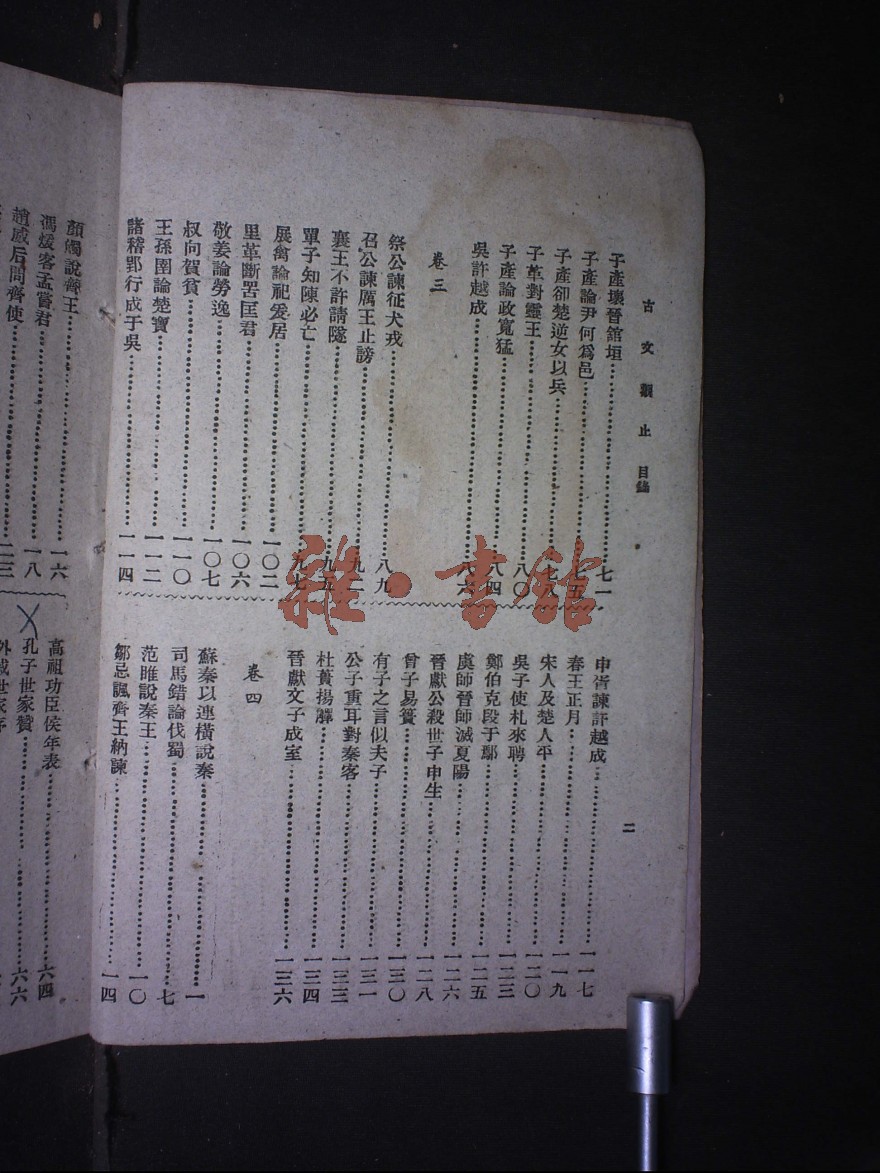 古文觀止 目錄
子產壞晉館垣⋯⋯七一
子產論尹何爲邑⋯⋯七五
子產卻楚逆女以兵⋯⋯七八
子革對靈王⋯⋯八〇
子產論政寬猛⋯⋯八四
吳許越成⋯⋯八六
卷三
祭公諫征犬戎⋯⋯八九
召公諫厲王止謗⋯⋯九二
襄王不許請隧⋯⋯九五
單子知陳必亡⋯⋯九七
展禽論祀爰居⋯⋯一〇二
里革斷罟匡君⋯⋯一〇六
敬姜論勞逸⋯⋯一〇七
叔向賀貧⋯⋯一一〇
王孫圉論楚寶⋯⋯一一二
諸稽郢行成于吳⋯⋯一一四
申胥諫許越成⋯⋯一一七
春王正月⋯⋯一一九
宋人及楚人平⋯⋯一二〇
吳子使札來聘⋯⋯一二三
鄭伯克段于鄢⋯⋯一二五
虞師晉師滅夏陽⋯⋯一二六
晉獻公殺世子申生⋯⋯一二八
曾子易簀⋯⋯一三〇
有子之言似夫子⋯⋯一三一
公子重耳對秦客⋯⋯一三三
杜蕢揚觶⋯⋯一三四
晉獻文子成室⋯⋯一三六
卷四
蘇秦以連橫說秦⋯⋯一
司馬錯論伐蜀⋯⋯七
范雎說秦王⋯⋯一〇
鄒忌諷齊王納諫⋯⋯一四
二
顏斶說齊王⋯⋯一六
馮煖客孟嘗君⋯⋯一八
趙威后問齊使⋯⋯二三
高祖功臣侯年表⋯⋯六四
孔子世家贊⋯⋯六六
外戚世家序
雜·書館